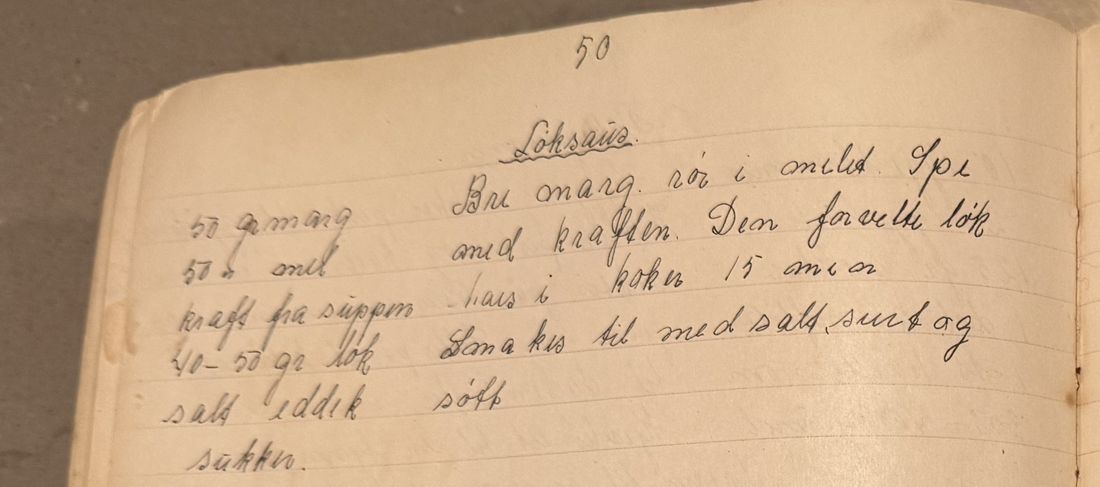 50
Löksaus.
50 gr marg
50 " mel
kraft fra suppen
40-50 gr lök
salt eddik
sukker.
Bre marg. rör i melet. Spe
med kraften. Den forvelte lök
haes i koker 15 min
Smakes til med salt, surt og
sött